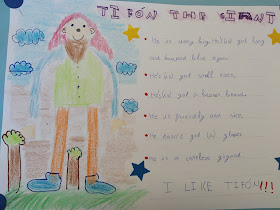 TIFÓN THE GIANT
He is very big. He's got long
and brown blue eyes.
He's got small ears.
He's got a brown beard.
He is friendly and nice.
He hasn't got glasses
He is a careless gigant.
I LIKE TIFÓN!!!